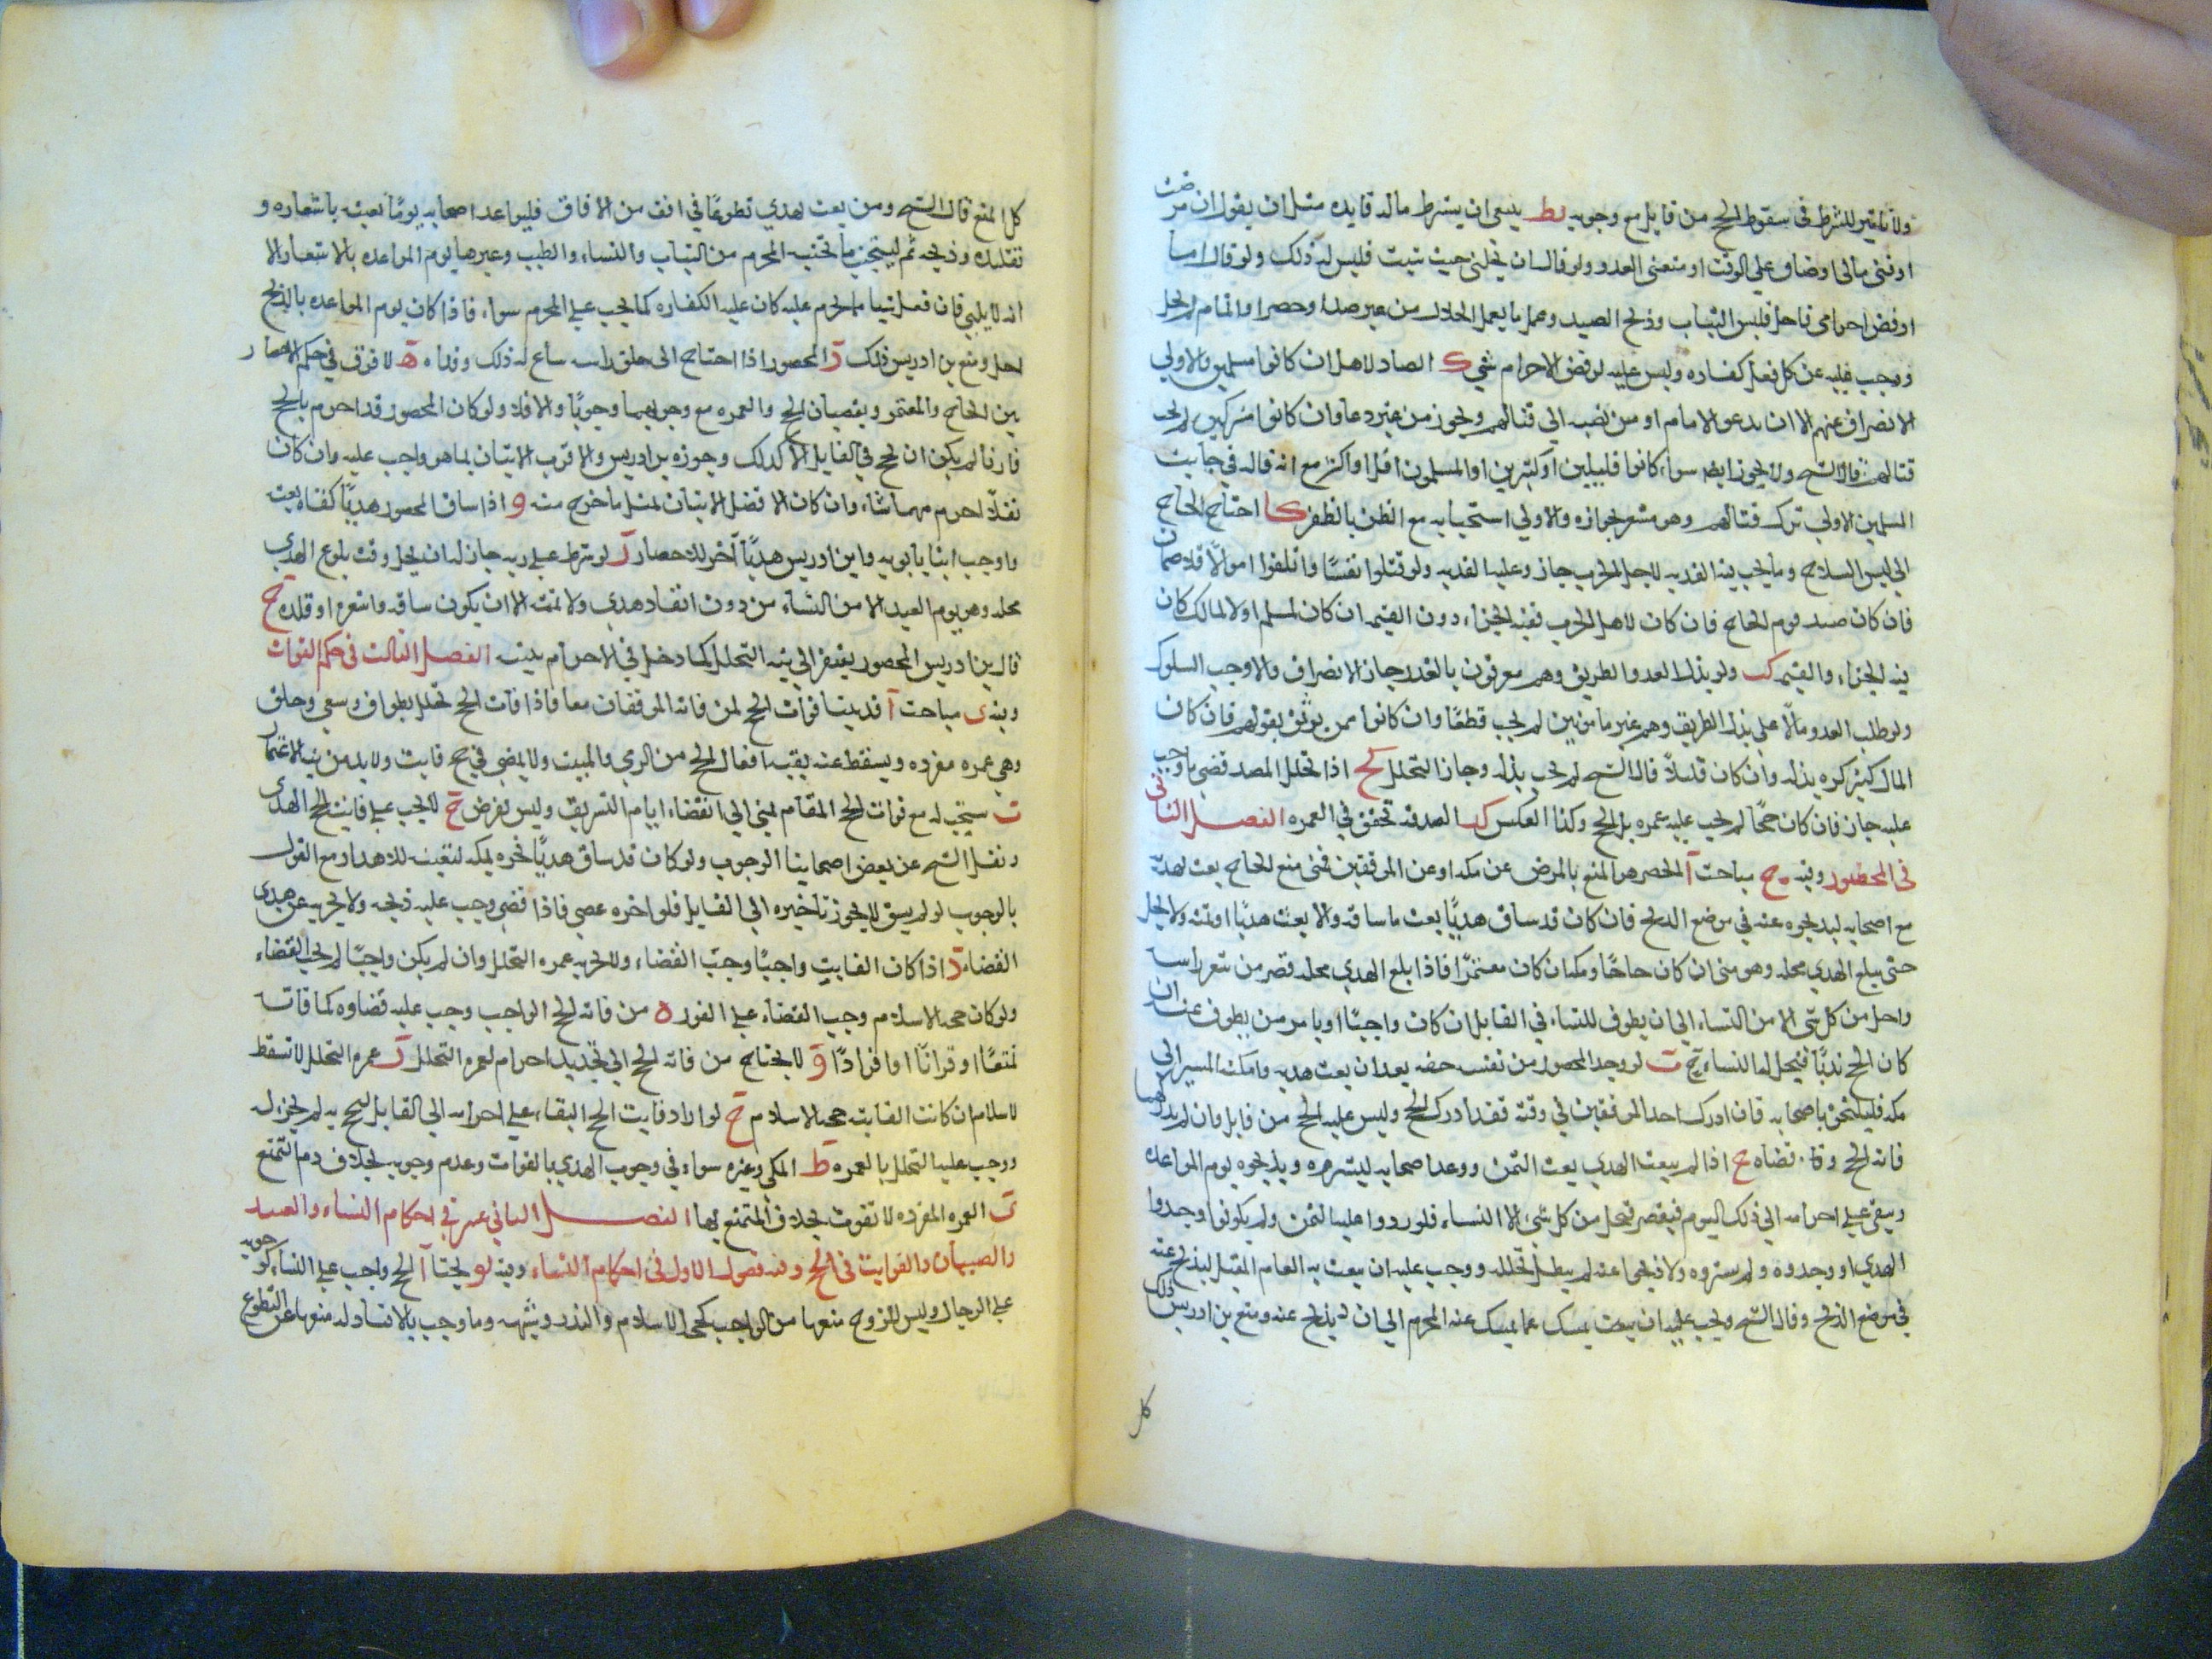 ولا تاثير للشرط في سقوط الحج من قابل مع وجوبه يط ينبغي ان يشترط ماله فايده مثل ان يقول ان مرضت
او فنى مالى او ضاق على الوقت او منعنى العدو ولو قال ان تحلنى حيث شيت فليس له ذلك ولو قال انا
ارفض احرامى فاحل فلبس الثياب وذبح الصيد وعمل ما يعمل الحلال من غير صد او حصر او اتمام لم يحل
ووجب عليه عن كل فعل كفاره وليس عليه لرفض الاحرام شي ك الصاد للاهل ان كانوا مسلمين فالاولي
الانصراف عنهم الا ان يدعو الامام او من نصبه الى قتالهم ويجوز من غير دعا وان كانوا مشركين لم يجب
قتالهم قال الشيخ ولا يجوز ايضا سواء كانوا قليلين او كثيرين او المسلمون اقل او اكثر مع انه قال في جانب
المسلمين الاولي ترك قتالهم وهو مشعر بجوازه والاولي استحبابه مع الظن بالظفر كا احتاج الحاج
الى لبس السلاح وما يجب فيه الفديه لاجل الحرب جاز وعليه الفديه ولو قتلوا نفسا واتلفوا اموالا فلا ضمان
فان كان صيد قوم الحاج فان كان لاهل الحرب ففيه الجزاء دون القيمه ان كان لمسلم او لا لمالك كان
فيه الجزاء والقيمه كب ولو بذل العدو الطريق وهم معرفون بالغدر جاز الانصراف والا وجب السلوك
ولو طلب العدو مالا على بذل الطريق وهم غير مامونين لم يجب قطعا وان كانوا ممن يوثق بقولهم فان كان
المال كثير كره بذله وان كان قليلا قال الشيخ لم يجب بذله وجاز التحلل كج اذا تحلل المصد قضى ما وجب
عليه جاز فان كان حجا لم يجب عليه عمره بل الحج وكذا العكس كد الصد قد تحقق في العمره الفصل الثاني
في المحصور وفيه ح مباحث آ المحصر هو المنع بالمرض عن مكه او عن الموقفين فمتى منع الحاج بعث هديه
مع اصحابه ليذبحوه عنه في موضع الذبح فان كان قد ساق هديا بعث ما ساقه والا بعث هديا او ثمنه ولا يحل
حتى يبلغ الهدي محله وهو منى ان كان حاجا ومكه ان كان معتمرا فاذا بلغ الهدي محله قصر من شعر راسه
واحل من كل شي الا من النساء الى ان يطوف للنساء في القابل ان كان واجبا او يامر من يطوف عنه ان
كان الحج ندبا فيحل له النساء ح ب لو وجد المحصور من نفسه خفه بعد ان بعث هديه وامكنه المسير الى
مكه فليلتحق باصحابه فان ادرك احد الموقفين في وقته فقد ادرك الحج وليس عليه الحج من قابل وان لم يدركهما
فاته الحج وقضاه ج اذا لم يبعث الهدي بعث الثمن ووعد اصحابه ليشتروه ويذبحوه يوم المواعده
ويبقى على احرامه الى ذلك اليوم فيقصر فيحل من كل شي الا النساء فلو ردوا عليه الثمن ولم يكونوا وجدوا
الهدي او وجدوه ولم يشتروه ولا ذبحوا عنه لم يبطل تحلله ووجب عليه ان يبعث به العام المقبل ليذبح عنه
في موضع الذبح وقال الشيخ ويجب عليه ان يبعث يمسك عما يمسك عنه المحرم الى ان يذبح عنه ومنع بن ادريس ذلك
كل
كل المنع قال الشيخ ومن بعث بهدي تطوعا في افق من الافاق فليواعد اصحابه يوما بعينه باشعاره و
تقليده وذبحه ثم ليجتنب ما تجنبه المحرم من الثياب والنساء والطيب وغيرها يوم المواعده بالاشعار الا
انه لا يلبي فان فعل شيا مما يحرم عليه كان عليه الكفاره كما يجب على المحرم سواء فاذا كان يوم المواعده بالذبح
احل ومنع بن ادريس ذلك د المحصور اذا احتاج الى حلق راسه ساغ له ذلك وفداه ه لا فرق في حكم الاحصار
بين الحاج والمعتمر ويقضيان الحج والعمره مع وجوبهما وجوبا والا فلا ولو كان المحصور قد احرم بالحج
قارنا لم يكن ان يحج في القابل الا كذلك وجوزه بن ادريس والاقرب الاتيان بما هو واجب عليه وان كان
نفلا احرم مهما شاء وان كان الافضل الاتيان بمثل ما خرج منه و اذا ساق المحصور هديا كفاه بعثه
واوجب ابنا بابويه وابن ادريس هديا آخر للاحصار ز لو شرط على ربه جاز له ان يحل وقت بلوغ الهدي
محله وهو يوم العيد الا من النساء من دون انفاد هدي ولا ثمنه الا ان يكون ساقه واشعره او قلده ح
قال بن ادريس المحصور يفتقر الى نيه التحلل كما دخل في الاحرام بنيه الفصل الثالث في حكم الفوات
وفيه ى مباحث آ قد بينا فوات الحج لمن فاته الموقفان معا فاذا فات الحج تحلل بطواف وسعي وحلق
وهي عمره مفرده ويسقط عنه بقيه افعال الحج من الرمي والمبيت ولا يمضي في حج فايت ولا بد من نيه الاعتمار
ب يستحب له مع فوات الحج المقام بمنى الى انقضاء ايام التشريق وليس بفرض ج لا يجب على فايت الحج الهدي
ونقل الشيخ عن بعض اصحابنا الوجوب ولو كان قد ساق هديا نحره بمكه لتعينه للاهداء ومع القول
بالوجوب لو لم يسق لا يجوز تاخيره الى القابل فلو اخره عصى فاذا قضى وجب عليه ذبحه ولا يجزيه عن هدي
القضاء د اذا كان الفايت واجبا وجب القضاء ولا يجزيه عمره التحلل وان لم يكن واجبا لم يجب القضاء
ولو كان حجه الاسلام وجب القضاء على الفور ه من فاته الحج الواجب وجب عليه قضاوه كما فاته
تمتعا او قرانا او افرادا و لا يحتاج من فاته الحج الى تجديد احرام لعمره التحلل ز عمره التحلل لا تسقط
الاسلام ان كانت الفايته حجه الاسلام ح لو اراد فايت الحج البقاء على احرامه الى القابل ليحج به لم يجز له
ووجب عليه التحلل بالعمره ط المكي وغيره سواء في وجوب الهدي بالفوات وعدم وجوبه بخلاف دم التمتع
ى العمره المفرده لا تفوت بخلاف المتمتع بها الفصل الثاني عشر في احكام النساء والعبيد
والصبيان والفوايت في الحج وفيه فصول الاول في احكام النساء وفيه يو بحثا آ الحج واجب على النساء كوجوبه
على الرجال وليس للزوج منعها من الواجب كحجه الاسلام والنذر وشبهه وما وجب بالافساد له منعها عن التطوع